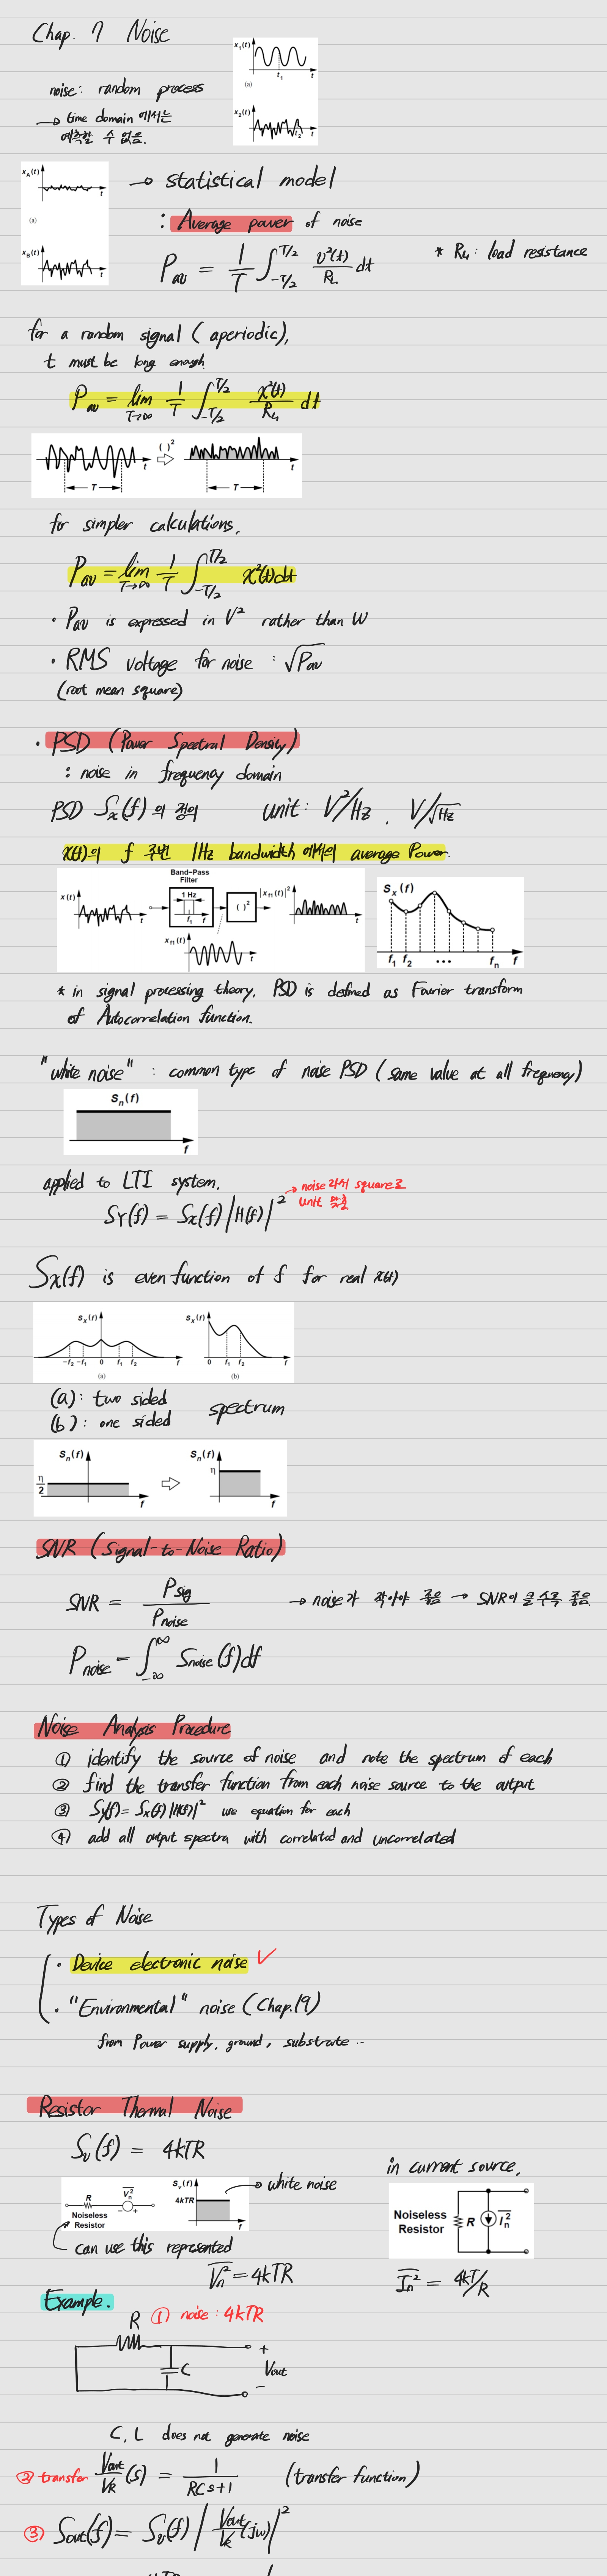 Chap. 7 Noise
x₁(t)
t₁
t
(a)
x₂(t)
t₂
t
noise: random process
→ time domain 에서는
예측할 수 없음.
x_A(t)
t
(a)
x_B(t)
t
→ statistical model
: Average power of noise
P_av = 1/T ∫_{-T/2}^{T/2} v²(t)/R_L dt
* R_L: load resistance
for a random signal (aperiodic),
t must be long enough.
P_av = lim_{T→∞} 1/T ∫_{-T/2}^{T/2} x²(t)/R_L dt
t
( )²
t
T
T
for simpler calculations,
P_av = lim_{T→∞} 1/T ∫_{-T/2}^{T/2} x²(t)dt
· P_av is expressed in V² rather than W
· RMS voltage for noise : √P_av
(root mean square)
· PSD (Power Spectral Density)
: noise in frequency domain
PSD S_x(f) 의 정의 unit: V²/Hz , V/√Hz
x(t)의 f 주변 1Hz bandwidth 에서의 average Power.
Band-Pass
Filter
x(t)
t
1 Hz
f₁
f
( )²
|x_f1(t)|²
t
x_f1(t)
t
S_x(f)
f₁ f₂ ··· f_n f
* in signal processing theory, PSD is defined as Fourier transform
of Autocorrelation function.
"white noise" : common type of noise PSD (same value at all frequency)
S_n(f)
f
applied to LTI system,
S_Y(f) = S_x(f)|H(f)|²
→ noise라서 square로
unit 맞춤
S_x(f) is even function of f for real x(t)
S_x(f)
-f₂ -f₁ 0 f₁ f₂ f
(a)
S_x(f)
0 f₁ f₂ f
(b)
(a): two sided
(b): one sided
spectrum
S_n(f)
η/2
f
S_n(f)
η
f
SNR (Signal-to-Noise Ratio)
SNR = P_sig / P_noise
→ noise가 작아야 좋음 → SNR이 클수록 좋음
P_noise = ∫_{-∞}^{∞} S_noise(f)df
Noise Analysis Procedure
① identify the source of noise and note the spectrum of each
② find the transfer function from each noise source to the output
③ S_Y(f) = S_x(f)|H(f)|² use equation for each
④ add all output spectra with correlated and uncorrelated
Types of Noise
· Device electronic noise ✓
· "Environmental" noise (Chap.19)
from Power supply, ground, substrate ··
Resistor Thermal Noise
S_v(f) = 4kTR
in current source,
R
V_n²
- +
Noiseless
Resistor
S_v(f)
4kTR
f
→ white noise
can use this represented
V_n² = 4kTR
Noiseless
Resistor
R
I_n²
I_n² = 4kT/R
Example.
R ① noise: 4kTR
C
+
Vout
-
C, L does not generate noise
② transfer Vout/V_R (s) = 1/(RCs+1) (transfer function)
③ Sout(f) = S_v(f) |Vout/V_R (jω)|²